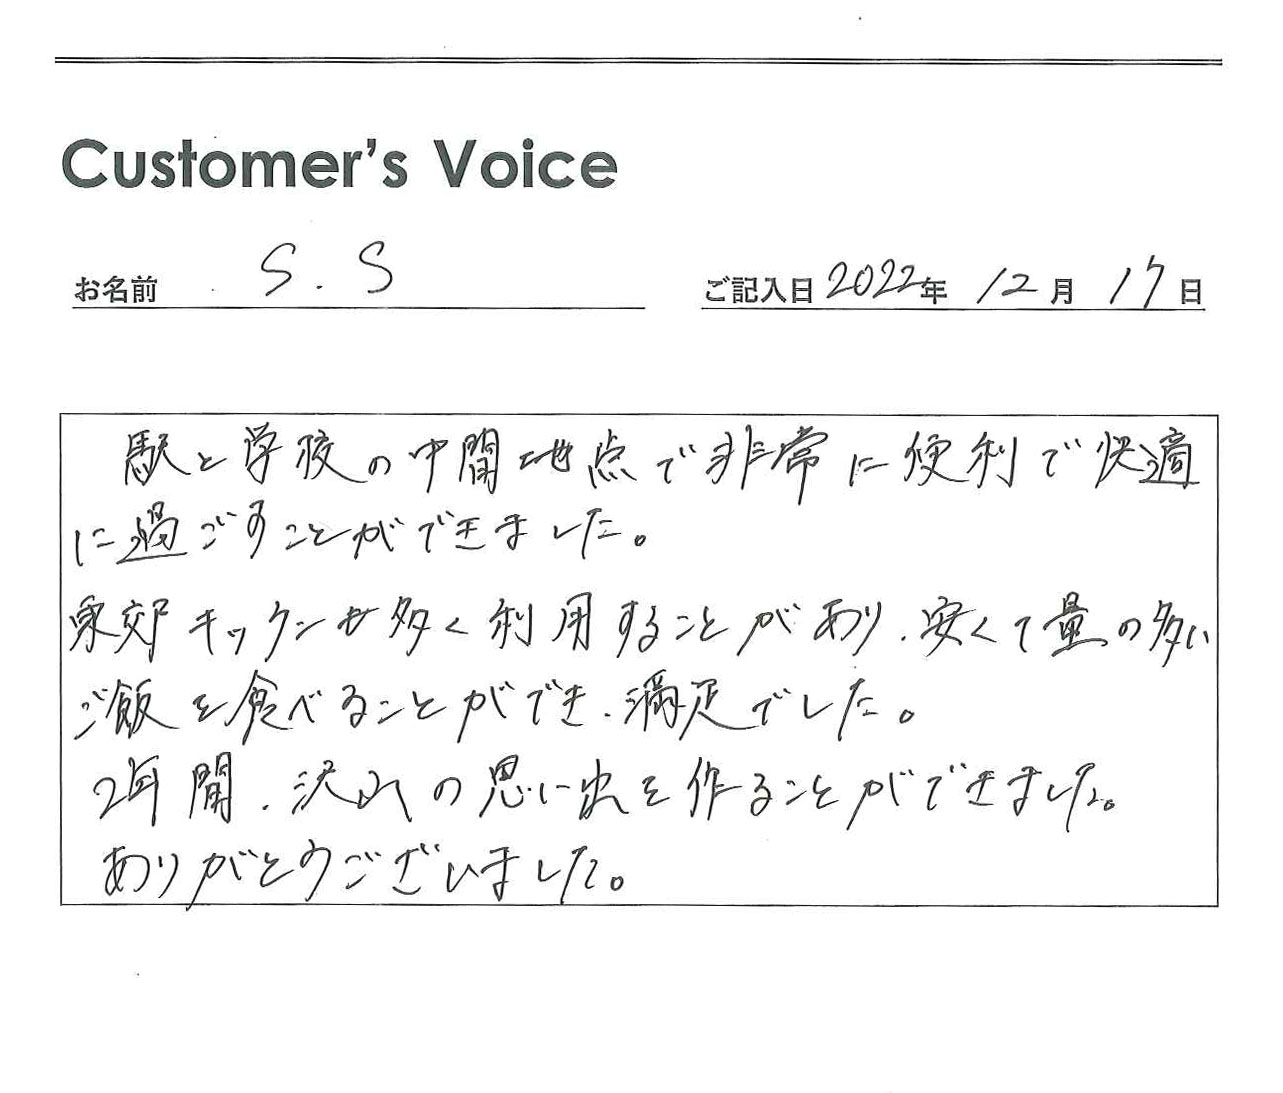 Customer's Voice
お名前 S.S
ご記入日 2022年 12月 17日
駅と学校の中間地点で非常に便利で快適
に過ごすことができました。
東郊キッチンも多く利用することがあり、安くて量の多い
ご飯を食べることができ、満足でした。
2年間、沢山の思い出を作ることができました。
ありがとうございました。